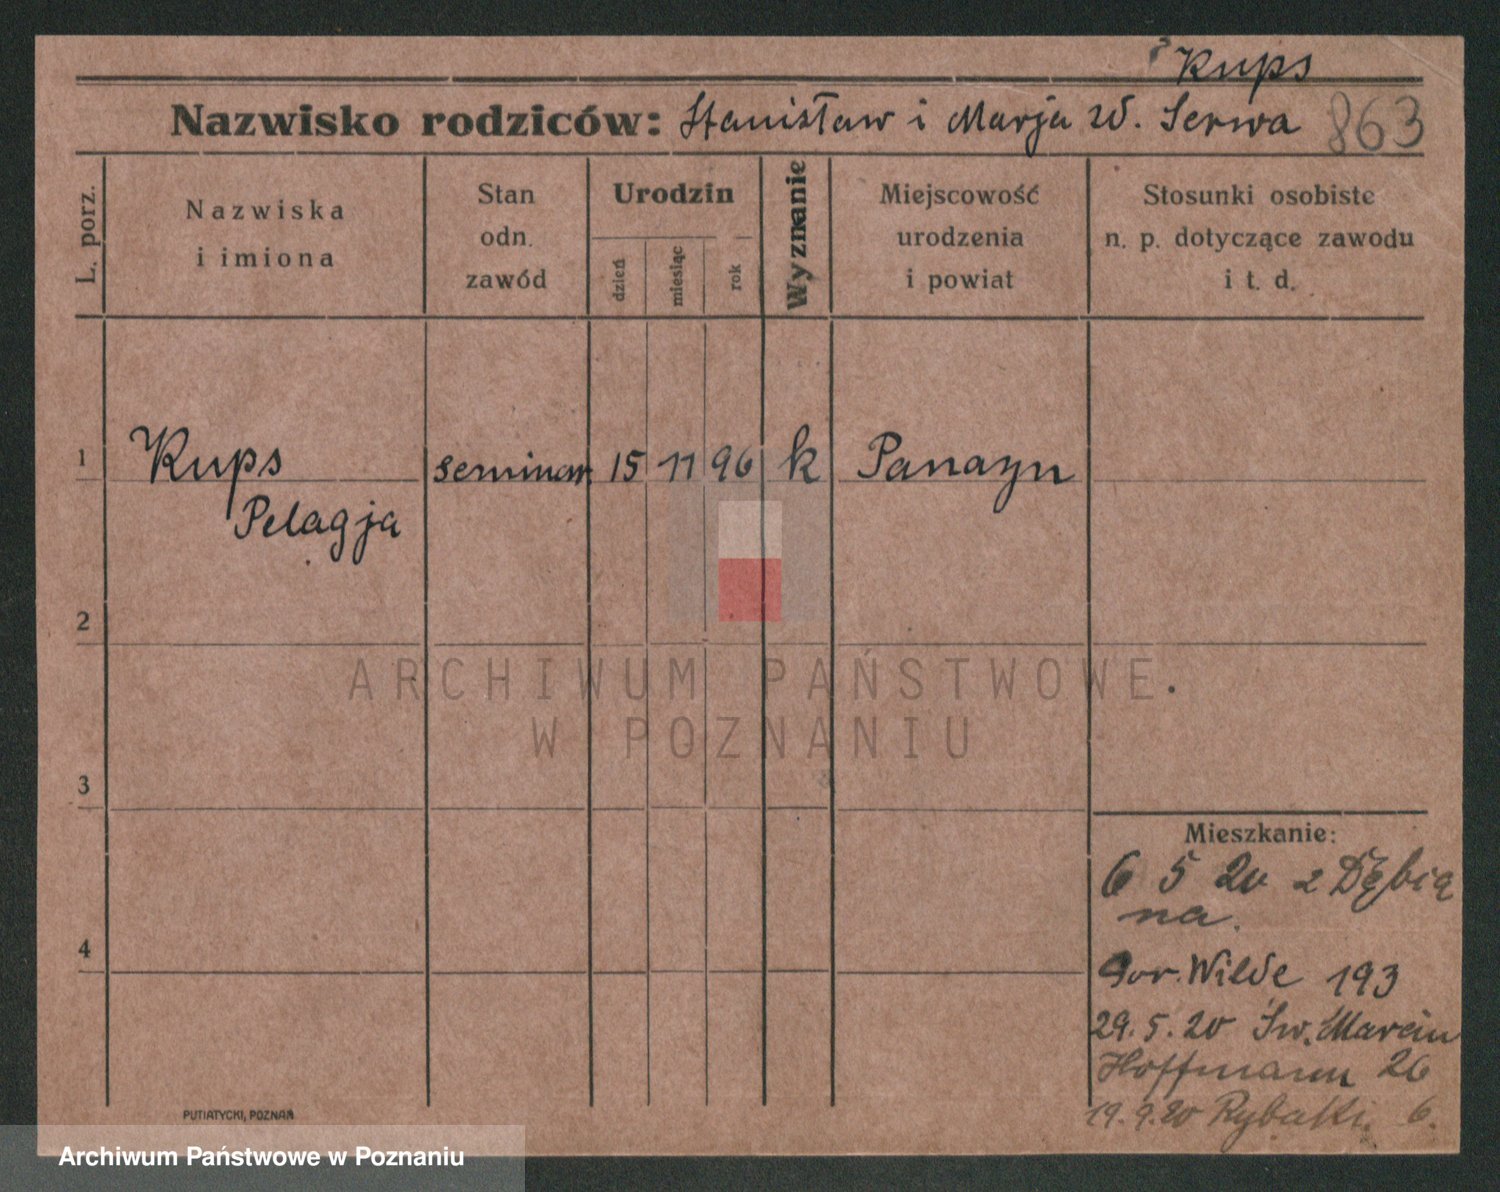 Kups
Nazwisko rodziców: Stanisław i Marja w. Serwa 863
L. porz.
Nazwiska
i imiona
Stan
odn.
zawód
Urodzin
dzień
miesiąc
rok
Wyznanie
Miejscowość
urodzenia
i powiat
Stosunki osobiste
n. p. dotyczące zawodu
i t. d.
1 Kups seminar. 15 11 96 k
Pelagja
2
ARCHIWUM PAŃSTWOWE
W POZNANIU
3
Mieszkanie:
6 5 20 z Dębią
na.
4
Gor. Wilde 193
29.5.20 Św. Marcin
Hoffmann 26
19.9.20 Rybaki. 6.
PUTIATYCKI, POZNAŃ
Archiwum Państwowe w Poznaniu